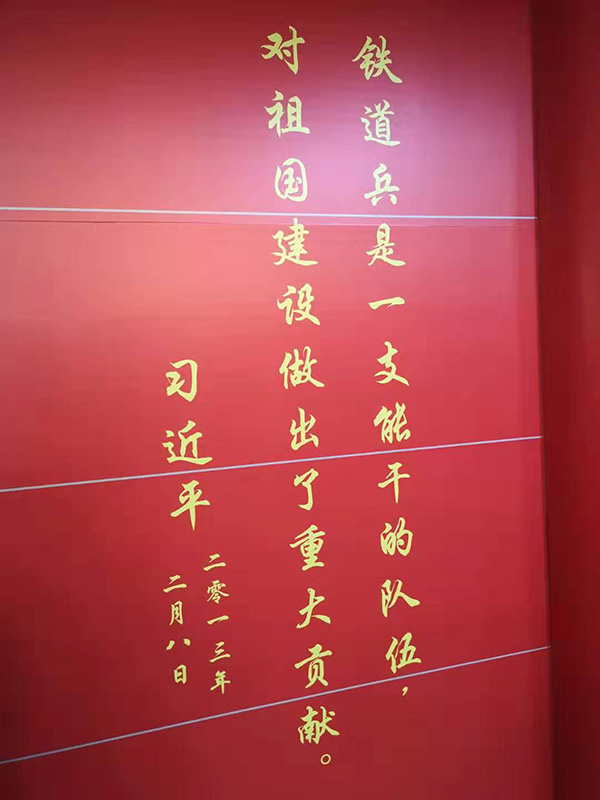 铁道兵是一支能干的队伍，
对祖国建设做出了重大贡献。
习近平
二零一三年
二月八日